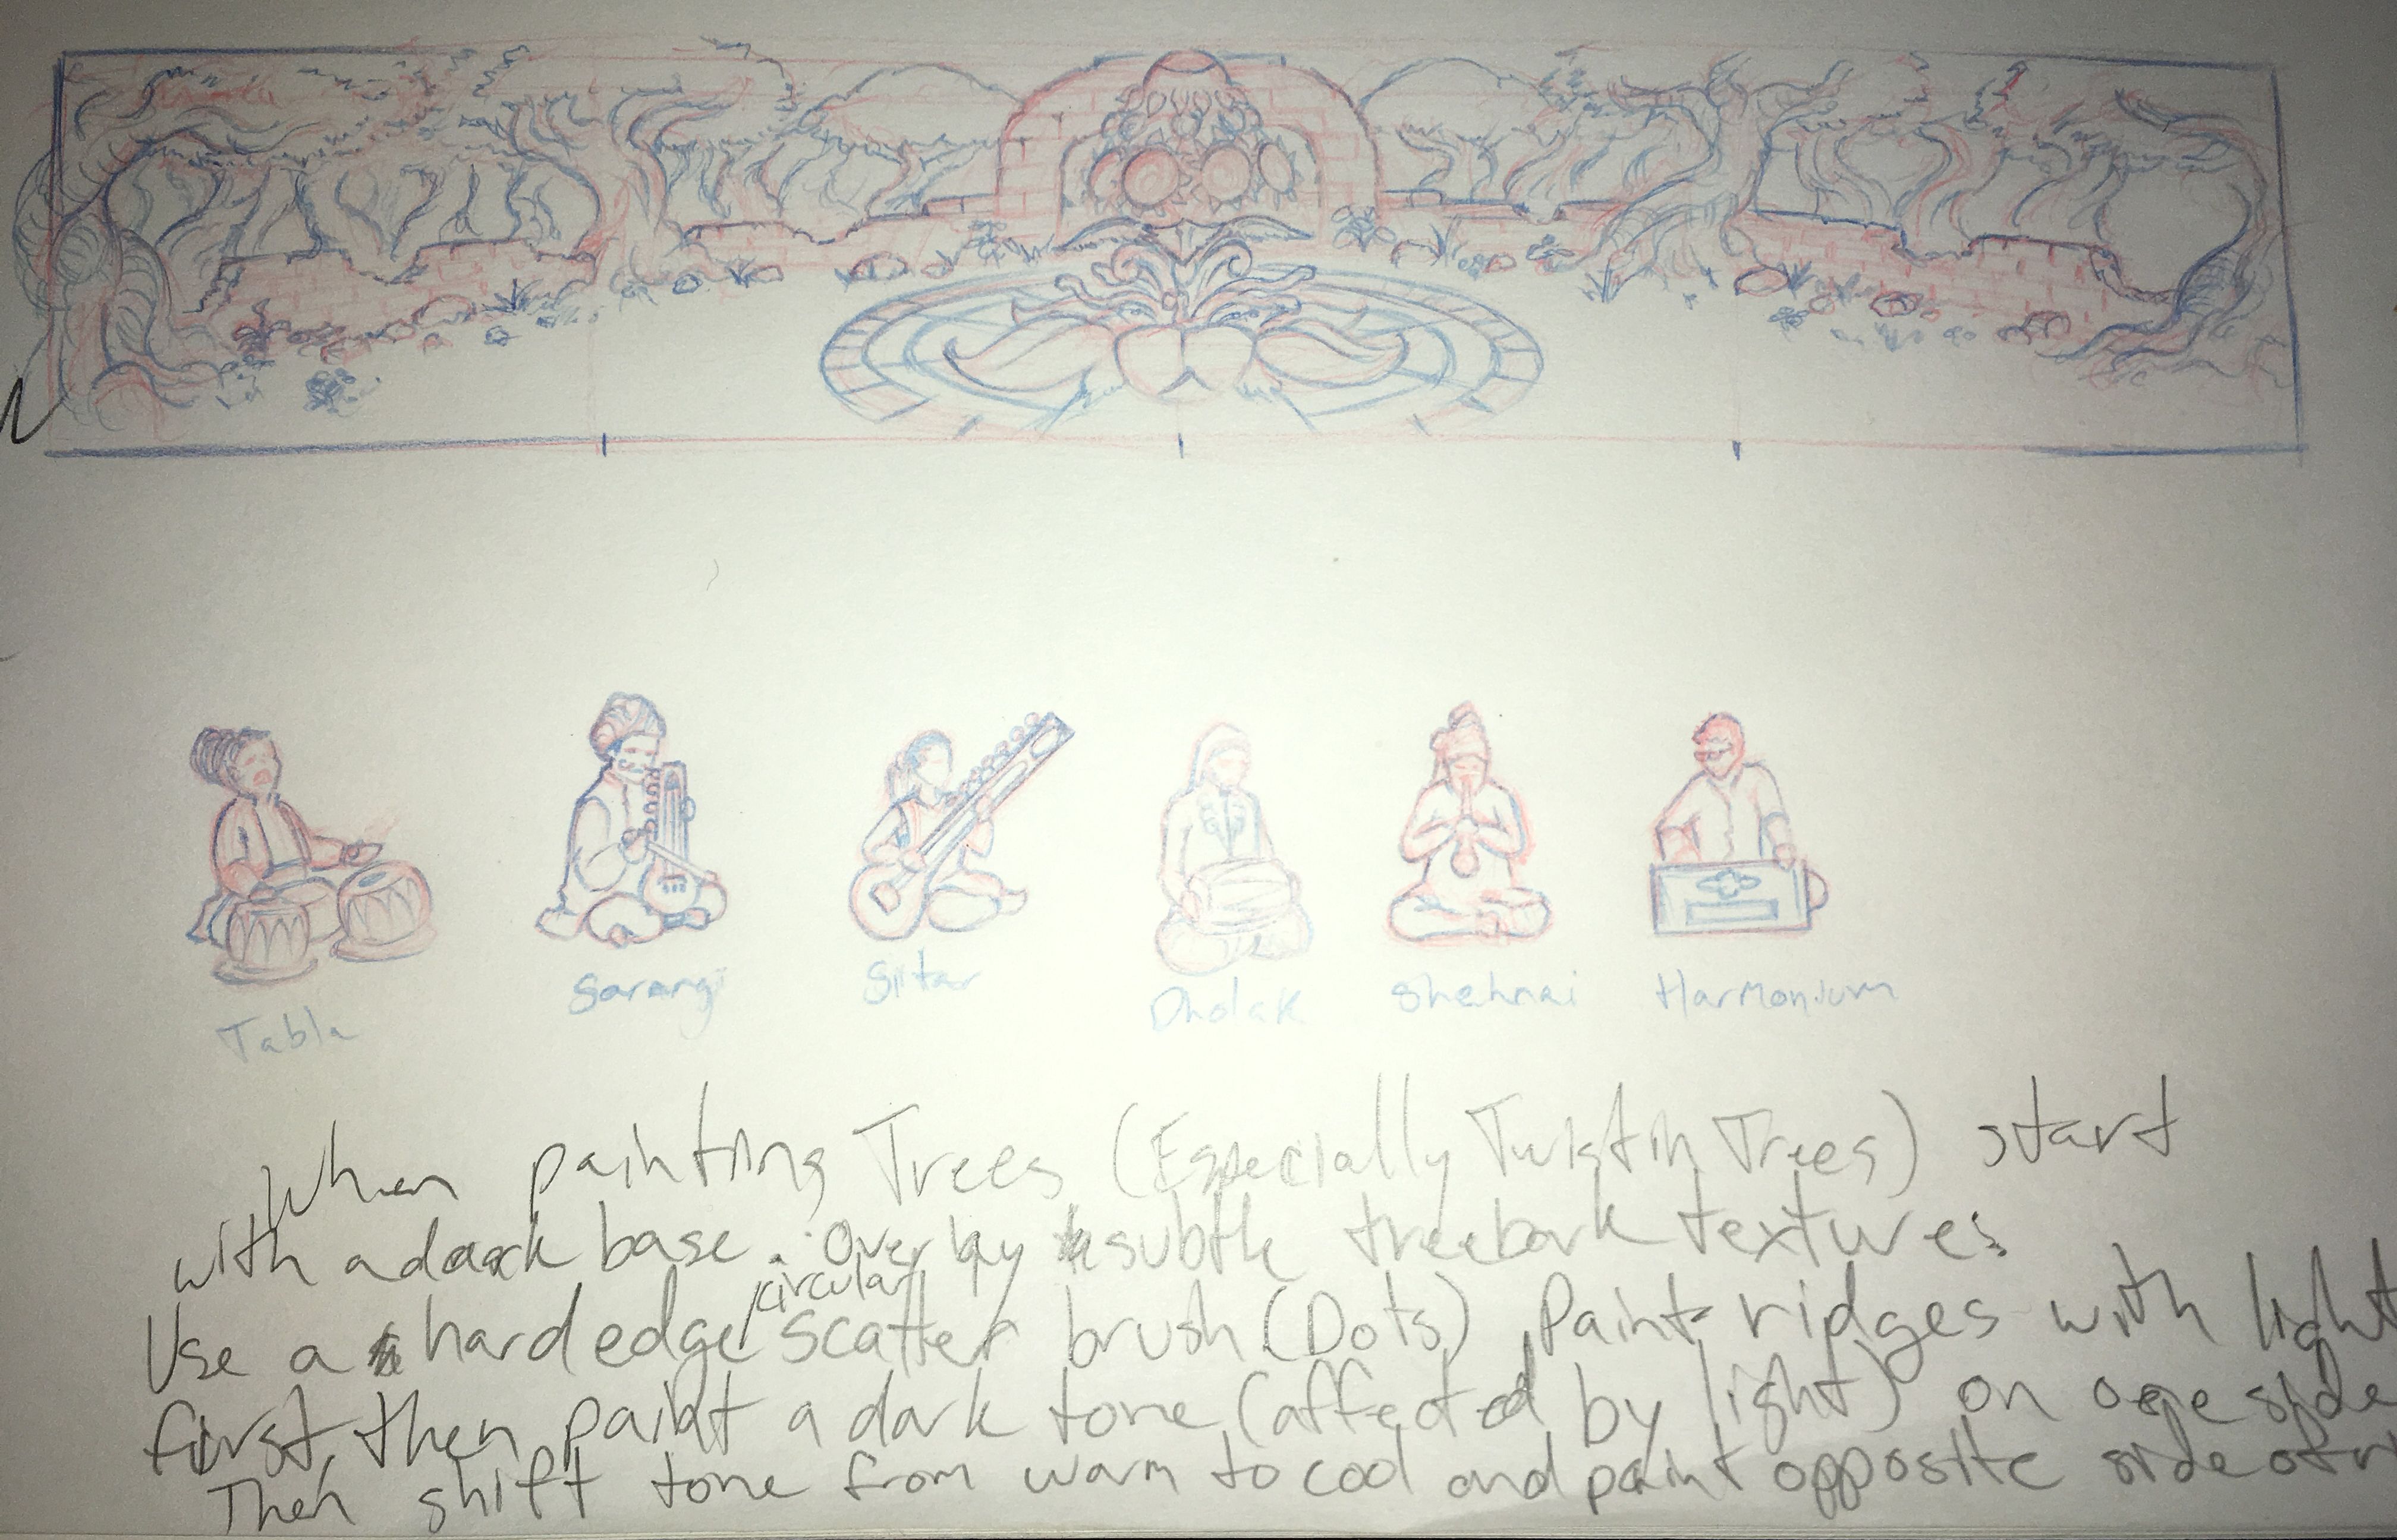 Tabla Sarangi Sitar Dholak Shehnai Harmonium
When painting Trees (Especially Twistin Trees) start
with a dark base. Overlay subtle treebark textures
Use a hard edge circular scatter brush (Dots) Paint ridges with light
first then paint a dark tone (affected by light) on one side
Then shift tone from warm to cool and paint opposite side of